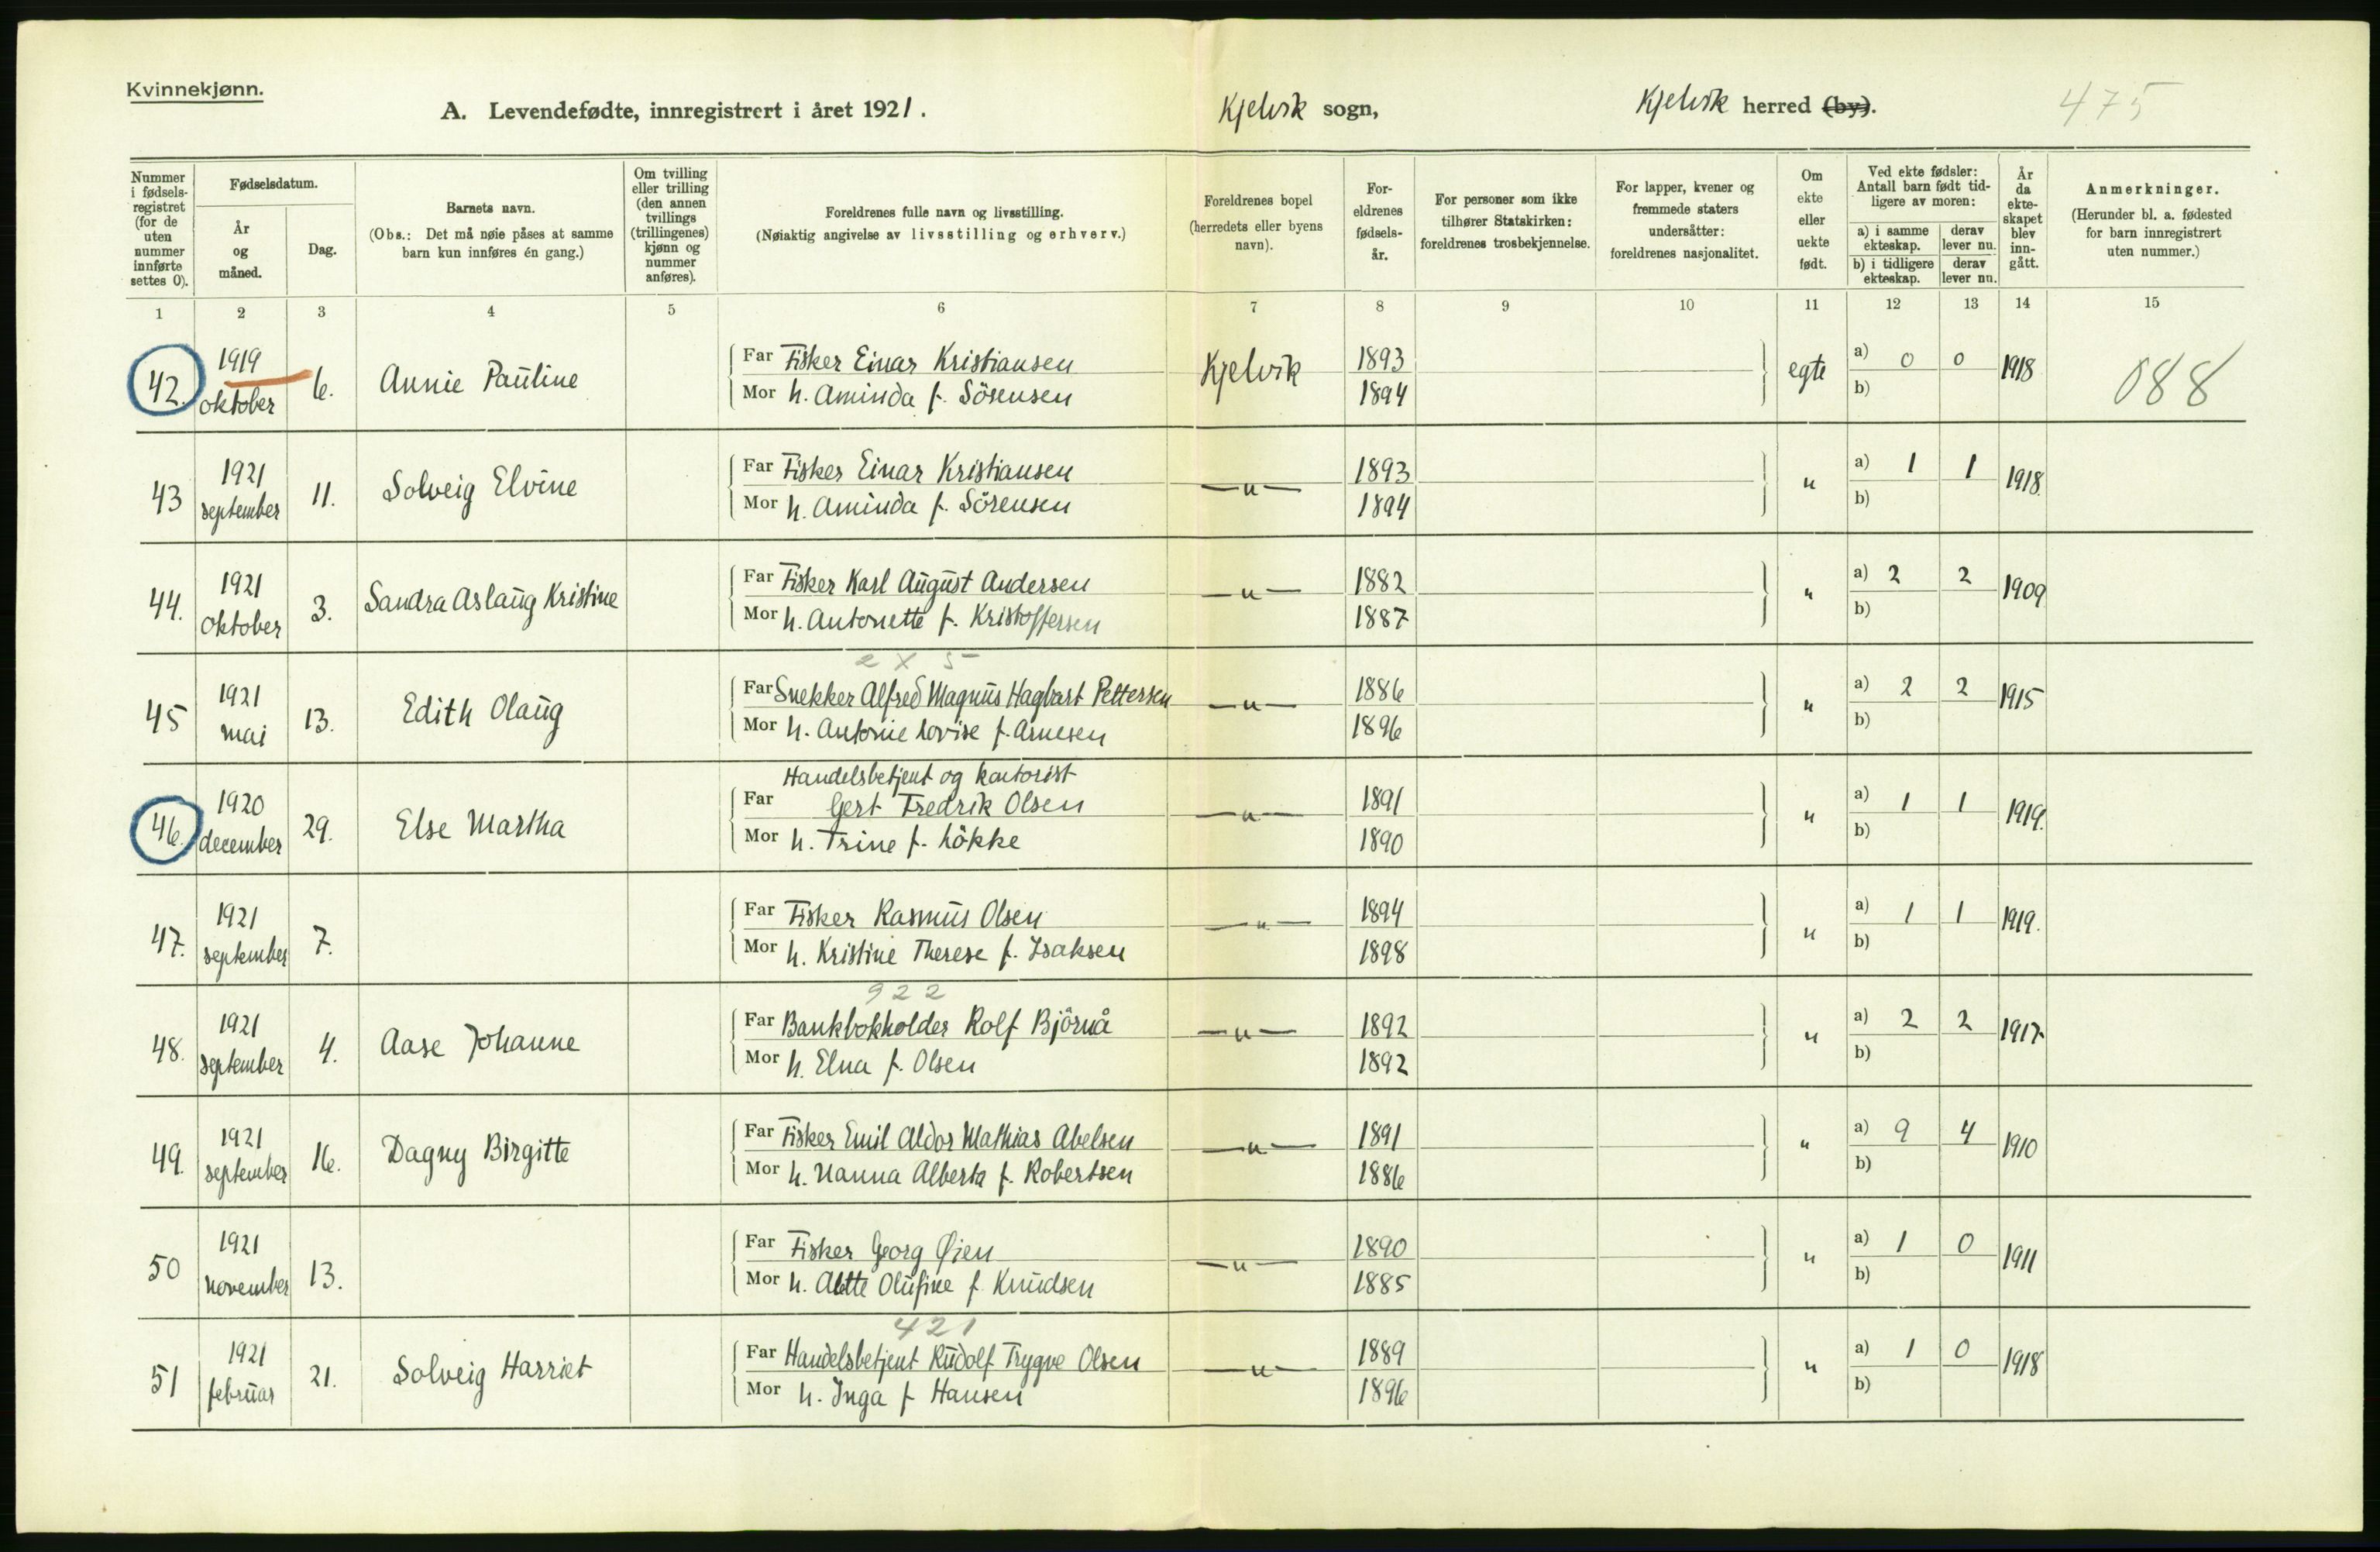 Kvinnekjønn.
A. Levendefødte, innregistrert i året 1921.
Kjelvik sogn,
Kjelvik herred (by).
475
Nummer i fødselsregistret (for de uten nummer innførte settes 0).
Fødselsdatum.
År og måned.
Dag.
Barnets navn.
(Obs.: Det må nøie påses at samme barn kun innføres én gang.)
Om tvilling eller trilling (den annen tvillings (trillingenes) kjønn og nummer anføres).
Foreldrenes fulle navn og livsstilling.
(Nøiaktig angivelse av livsstilling og erhverv.)
Foreldrenes bopel (herredets eller byens navn).
Foreldrenes fødselsår.
For personer som ikke tilhører Statskirken: foreldrenes trosbekjennelse.
For lapper, kvener og fremmede staters undersåtter: foreldrenes nasjonalitet.
Om ekte eller uekte født.
Ved ekte fødsler: Antall barn født tidligere av moren:
a) i samme ekteskap.
derav lever nu.
b) i tidligere ekteskap.
derav lever nu.
År da ekteskapet blev inngått.
Anmerkninger.
(Herunder bl. a. fødested for barn innregistrert uten nummer.)
1 2 3 4 5 6 7 8 9 10 11 12 13 14 15
42. 1919 oktober 6. Annie Pauline
Far Fisker Einar Kristiansen Kjelvik 1893 egte a) 0 0 1918 088
Mor h. Aminda f. Sörensen 1894 b)
43 1921 september 11. Solveig Elvine
Far Fisker Einar Kristiansen —"— 1893 " a) 1 1 1918.
Mor h. Aminda f. Sörensen 1894 b)
44. 1921 oktober 3. Sandra Aslaug Kristine
Far Fisker Karl August Andersen —"— 1882 " a) 2 2 1909
Mor h. Antonette f. Kristoffersen 1887 b)
2 x 5
45 1921 mai 13. Edith Olaug
Far Snekker Alfred Magnus Hagbart Pettersen —"— 1886 " a) 2 2 1915
Mor h. Antonie Lovise f. Arnesen 1896 b)
46. 1920 december 29. Else Martha
Handelsbetjent og kontorist
Far Gert Fredrik Olsen —"— 1891 " a) 1 1 1919.
Mor h. Trine f. Lökke 1890 b)
47. 1921 september 7.
Far Fisker Rasmus Olsen —"— 1894 " a) 1 1 1919.
Mor h. Kristine Therese f. Isaksen 1898 b)
922
48. 1921 september 4. Aase Johanne
Far Bankbokholder Rolf Björnå —"— 1892 " a) 2 2 1917
Mor h. Elna f. Olsen 1892 b)
49. 1921 september 16. Dagny Birgitte
Far Fisker Emil Aldor Mathias Abelsen —"— 1891 " a) 9 4 1910
Mor h. Nanna Alberta f. Robertsen 1886 b)
50 1921 november 13.
Far Fisker Georg Øien —"— 1890 " a) 1 0 1911
Mor h. Alette Olufine f. Knudsen 1885 b)
421
51 1921 februar 21. Solveig Harriet
Far Handelsbetjent Rudolf Trygve Olsen —"— 1889 " a) 1 0 1918
Mor h. Inga f Hansen 1896 b)